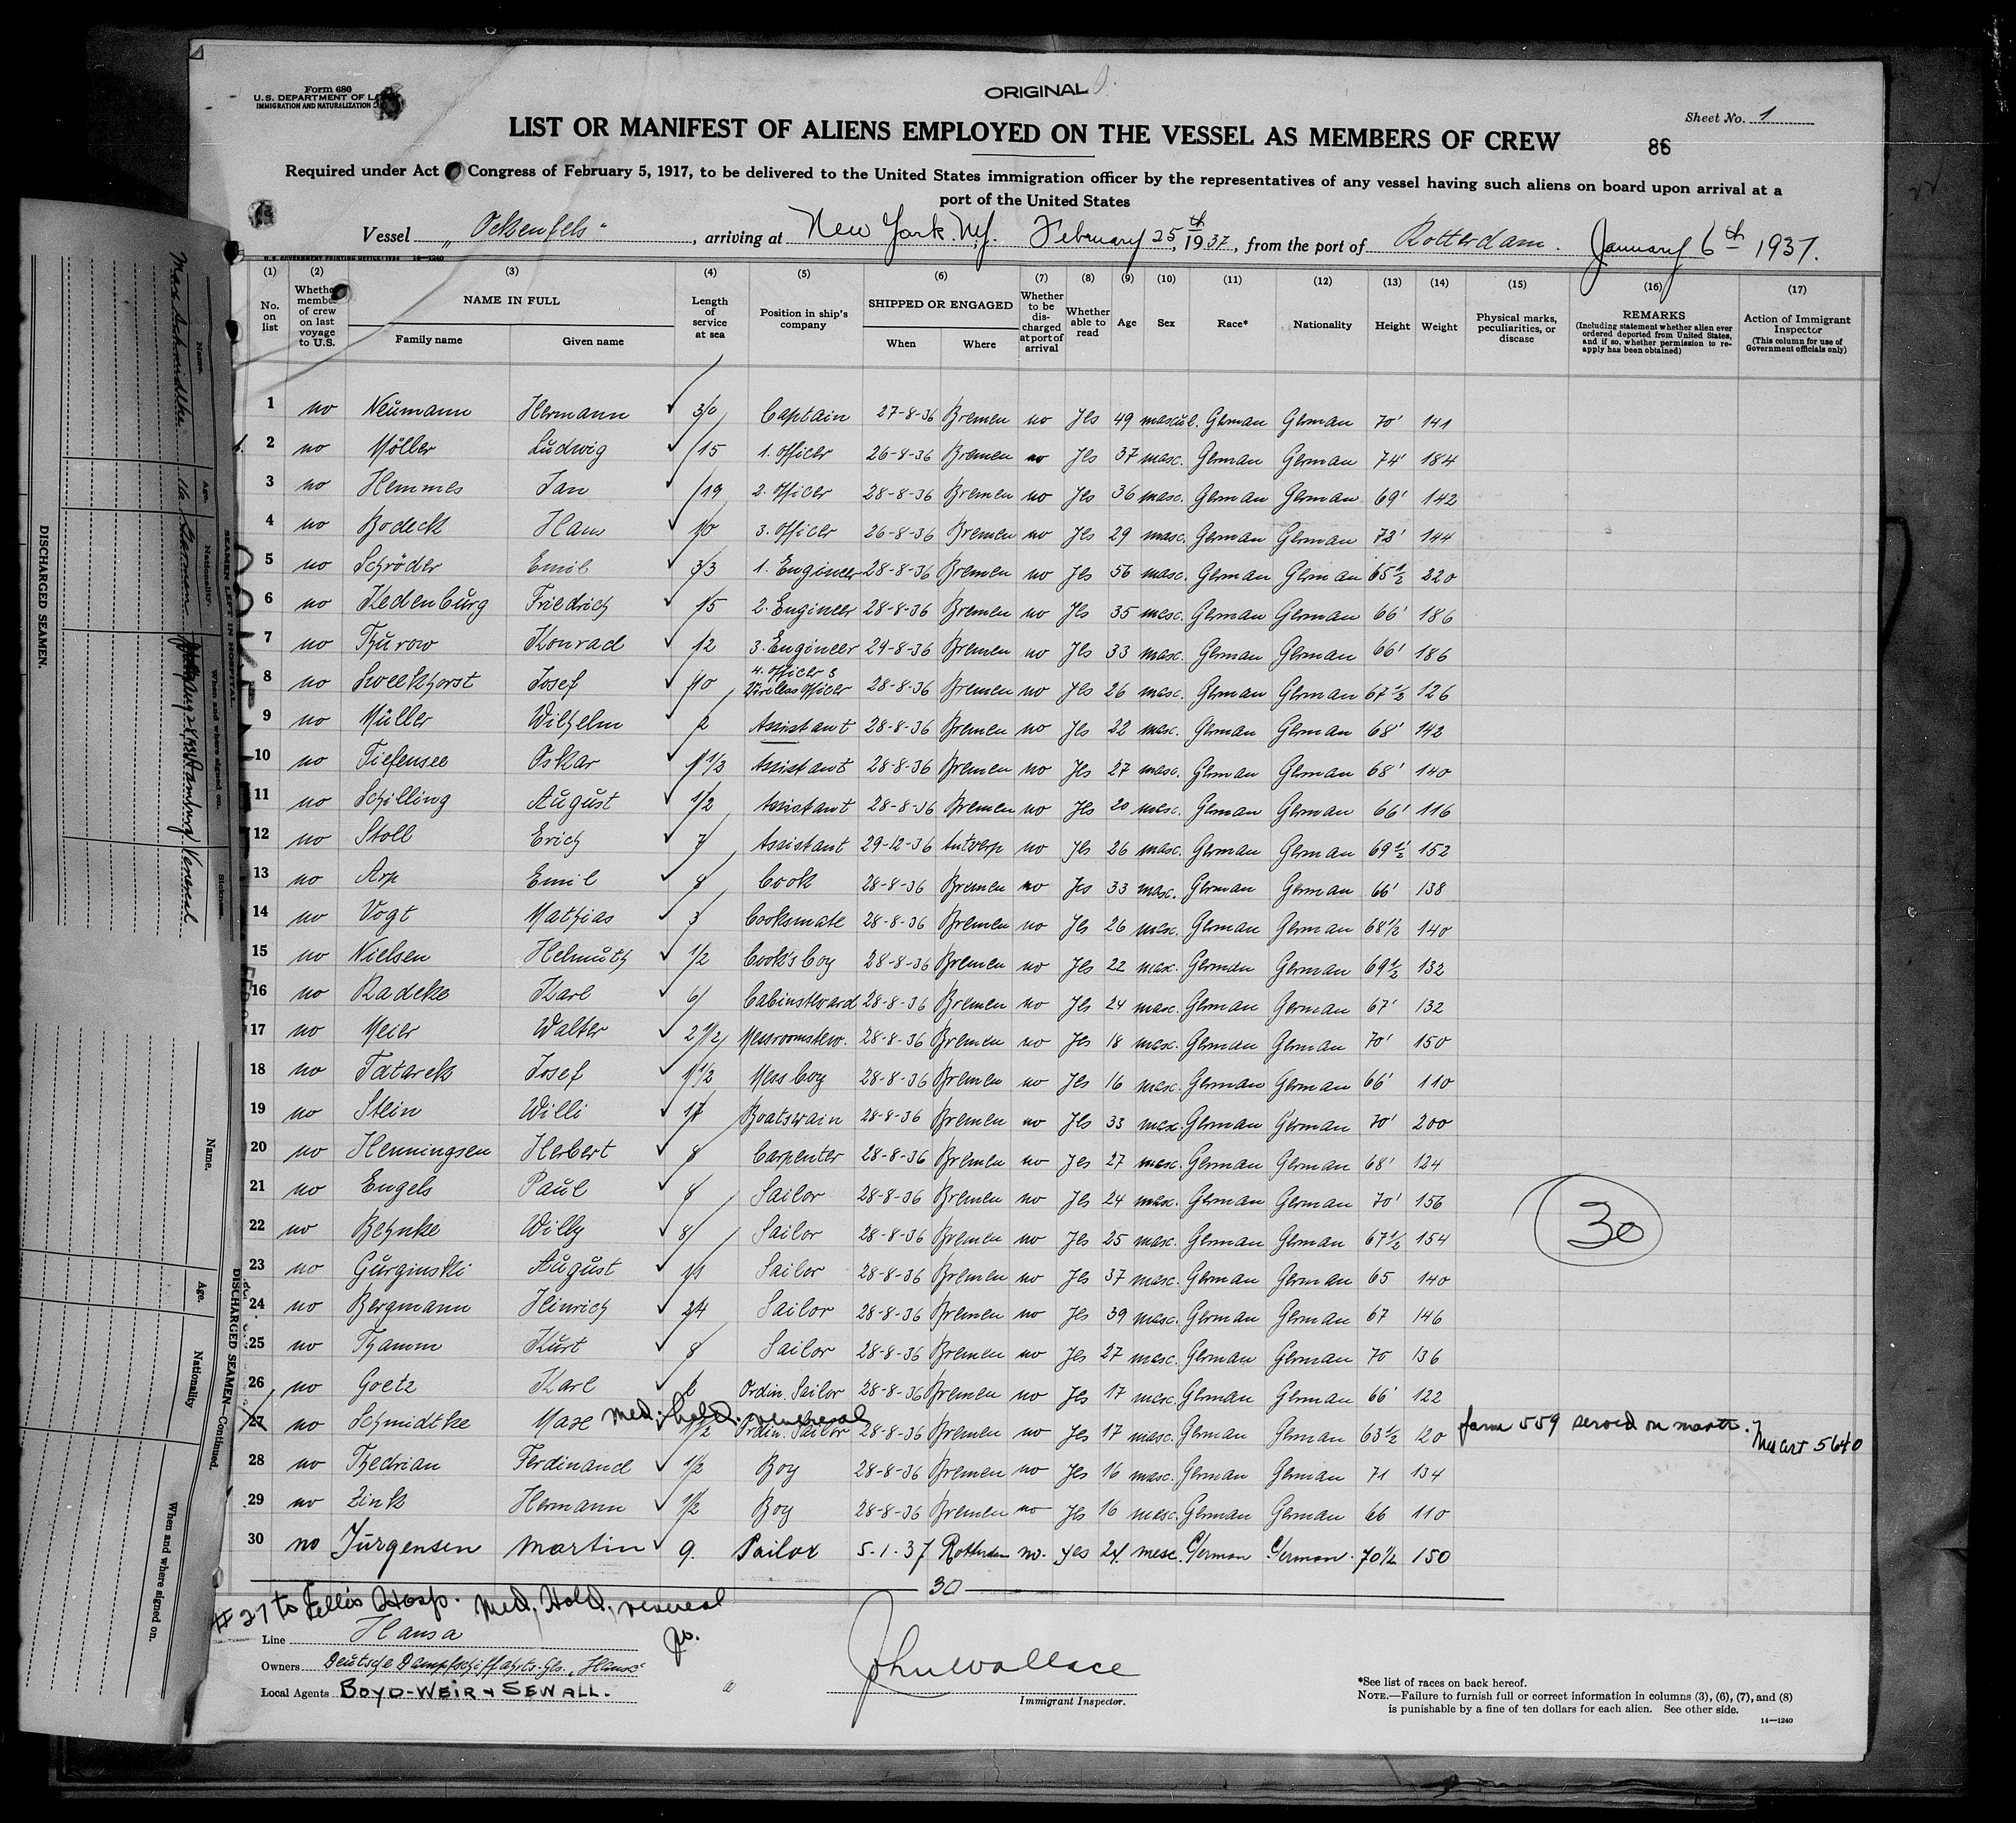 Form 680
U.S. DEPARTMENT OF
IMMIGRATION AND NATURALIZATION
ORIGINAL
Sheet No. 1
LIST OR MANIFEST OF ALIENS EMPLOYED ON THE VESSEL AS MEMBERS OF CREW
86
Required under Act Congress of February 5, 1917, to be delivered to the United States immigration officer by the representatives of any vessel having such aliens on board upon arrival at a
port of the United States
Vessel „Ockenfels“, arriving at New York. N.Y. February 25th, 1937, from the port of Rotterdam. January 6th 1937.
U.S. GOVERNMENT PRINTING OFFICE: 1934 14—1240
(1) (2) (3) (4) (5) (6) (7) (8) (9) (10) (11) (12) (13) (14) (15) (16) (17)
No. on list
Whether member of crew on last voyage to U.S.
NAME IN FULL
Family name Given name
Length of service at sea
Position in ship's company
SHIPPED OR ENGAGED
When Where
Whether to be discharged at port of arrival
Whether able to read
Age Sex Race* Nationality Height Weight
Physical marks, peculiarities, or disease
REMARKS
(Including statement whether alien ever ordered deported from United States, and if so, whether permission to reapply has been obtained)
Action of Immigrant Inspector
(This column for use of Government officials only)
1 no Neumann Hermann 30 Captain 27-8-36 Bremen no Yes 49 mascul. German German 70' 141
2 no Möller Ludwig 15 1. Officer 26-8-36 Bremen no Yes 37 masc. German German 74' 184
3 no Hemmes Jan 19 2. Officer 28-8-36 Bremen no Yes 36 masc. German German 69' 142
4 no Bodeck Hans 10 3. Officer 26-8-36 Bremen no Yes 29 masc. German German 72' 144
5 no Schröder Emil 33 1. Engineer 28-8-36 Bremen no Yes 56 masc. German German 65½ 220
6 no Kedenburg Friedrich 15 2. Engineer 28-8-36 Bremen no Yes 35 masc. German German 66' 186
7 no Thurow Konrad 12 3. Engineer 29-8-36 Bremen no Yes 33 masc. German German 66' 186
8 no Sweekhorst Josef 10 4. Officer & Wireless Officer 28-8-36 Bremen no Yes 26 masc. German German 67½ 126
9 no Müller Wilhelm 2 Assistant 28-8-36 Bremen no Yes 22 masc. German German 68' 142
10 no Tiefensee Oskar 1½ Assistant 28-8-36 Bremen no Yes 27 masc. German German 68' 140
11 no Schilling August 1/2 Assistant 28-8-36 Bremen no Yes 20 masc. German German 66' 116
12 no Stoll Erich 7 Assistant 29-12-36 Antwerp no Yes 26 masc. German German 69½ 152
13 no Arp Emil 8 Cook 28-8-36 Bremen no Yes 33 masc. German German 66' 138
14 no Vogt Mathias 3 Cooksmate 28-8-36 Bremen no Yes 26 masc. German German 68½ 140
15 no Nielsen Helmuth 1/2 Cook's boy 28-8-36 Bremen no Yes 22 masc. German German 69½ 132
16 no Radeke Karl 6 Cabinsteward 28-8-36 Bremen no Yes 24 masc. German German 67' 132
17 no Meier Walter 2½ Messroomstew. 28-8-36 Bremen no Yes 18 masc. German German 70' 150
18 no Tatarek Josef 1½ Mess boy 28-8-36 Bremen no Yes 16 masc. German German 66' 110
19 no Stein Willi 17 Boatswain 28-8-36 Bremen no Yes 33 masc. German German 70' 200
20 no Henningsen Herbert 8 Carpenter 28-8-36 Bremen no Yes 27 masc. German German 68' 124
21 no Engels Paul 8 Sailor 28-8-36 Bremen no Yes 24 masc. German German 70' 156
22 no Behnke Willy 8 Sailor 28-8-36 Bremen no Yes 25 masc. German German 67½ 154
30
23 no Gurginski August 11 Sailor 28-8-36 Bremen no Yes 37 masc. German German 65 140
24 no Bergmann Heinrich 24 Sailor 28-8-36 Bremen no Yes 39 masc. German German 67 146
25 no Thamm Kurt 8 Sailor 28-8-36 Bremen no Yes 27 masc. German German 70 136
26 no Goetz Karl 2 Ordin. Sailor 28-8-36 Bremen no Yes 17 masc. German German 66' 122
med. held. venereal
27 no Schmidtke Max 1½ Ordin. Sailor 28-8-36 Bremen no Yes 17 masc. German German 63½ 120 form 559 served on master. Med Cert 5640
28 no Thedrian Ferdinand 1/2 Boy 28-8-36 Bremen no Yes 16 masc. German German 71 134
29 no Zink Hermann 1/2 Boy 28-8-36 Bremen no Yes 16 masc. German German 66 110
30 no Jurgensen Martin 9. Sailor 5.1.37 Rotterdam no. yes 24 masc. German German. 70½ 150
30
#27 to Ellis Hosp. Med. Held, venereal
Line Hansa
Owners Deutsche Dampfschiffahrts-Ges. „Hansa“
Local Agents BOYD-WEIR & SEWALL.
John Wallace
Immigrant Inspector.
*See list of races on back hereof.
NOTE.—Failure to furnish full or correct information in columns (3), (6), (7), and (8)
is punishable by a fine of ten dollars for each alien. See other side.
14—1240
DISCHARGED SEAMEN.
SEAMEN LEFT IN HOSPITAL
Name. Age. Nationality. When and where signed on. Sickness.
Max Schmidtke German Hamburg Venereal
DISCHARGED SEAMEN—Continued.
Name. Age. Nationality When and where signed on.